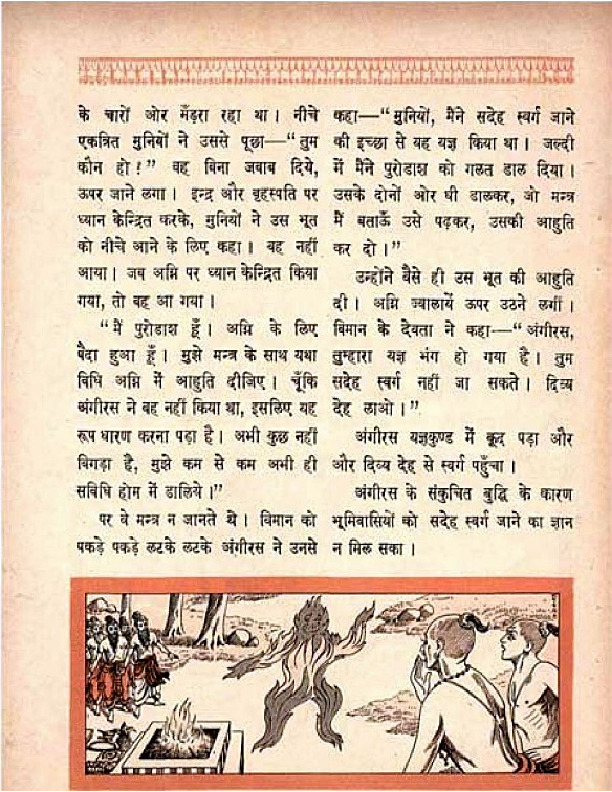 के चारों ओर मँडरा रहा था। नीचे
एकत्रित मुनियों ने उससे पूछा—“तुम
कौन हो?” वह बिना जवाब दिये,
ऊपर जाने लगा। इन्द्र और बृहस्पति पर
ध्यान केन्द्रित करके, मुनियों ने उस भूत
को नीचे आने के लिए कहा। वह नहीं
आया। जब अग्नि पर ध्यान केन्द्रित किया
गया, तो वह आ गया।
“मैं पुरोडाश हूँ। अग्नि के लिए
पैदा हुआ हूँ। मुझे मन्त्र के साथ यथा
विधि अग्नि में आहुति दीजिए। चूँकि
अंगीरस ने वह नहीं किया था, इसलिए यह
रूप धारण करना पड़ा है। अभी कुछ नहीं
बिगड़ा है, मुझे कम से कम अभी ही
सविधि होम में डालिये।”
पर वे मन्त्र न जानते थे। विमान को
पकड़े पकड़े लटके लटके अंगीरस ने उनसे
कहा—“मुनियों, मैंने सदेह स्वर्ग जाने
की इच्छा से यह यज्ञ किया था। जल्दी
में मैंने पुरोडाश को गलत डाल दिया।
उसके दोनों ओर घी डालकर, जो मन्त्र
मैं बताऊँ उसे पढ़कर, उसकी आहुति
कर दो।”
उन्होंने वैसे ही उस भूत की आहुति
दी। अग्नि ज्वालायें ऊपर उठने लगीं।
विमान के देवता ने कहा—“अंगीरस,
तुम्हारा यज्ञ भंग हो गया है। तुम
सदेह स्वर्ग नहीं जा सकते। दिव्य
देह लाओ।”
अंगीरस यज्ञकुण्ड में कूद पड़ा और
और दिव्य देह से स्वर्ग पहुँचा।
अंगीरस के संकुचित बुद्धि के कारण
भूमिवासियों को सदेह स्वर्ग जाने का ज्ञान
न मिल सका।